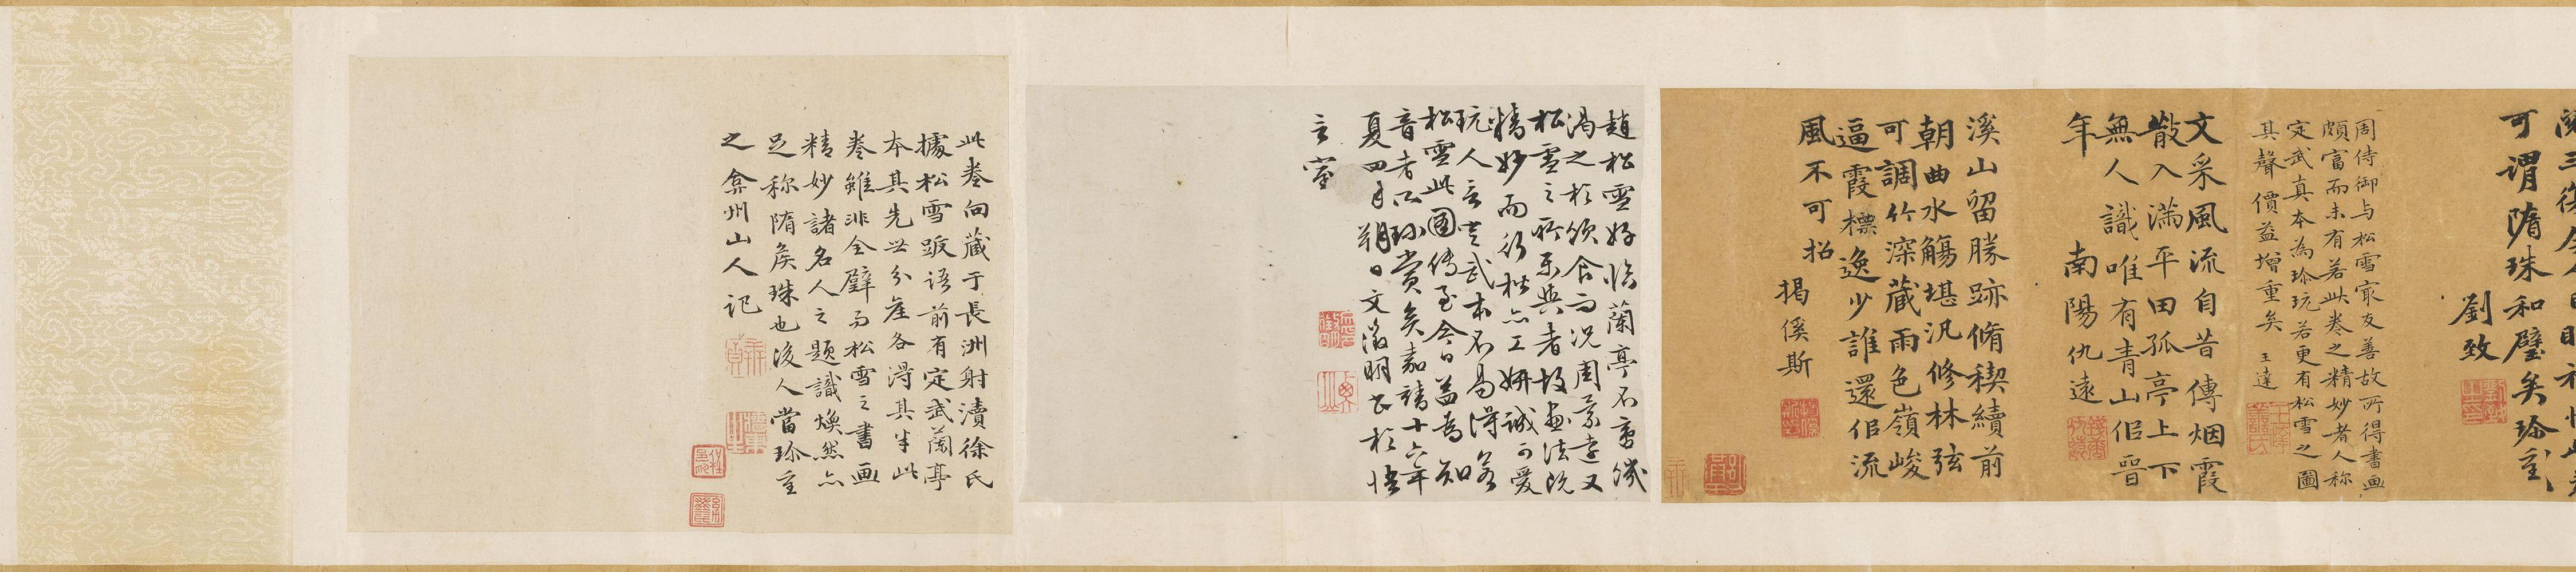 可謂隋珠和璧矣珍重
劉致
周侍御与松雪㝡友善故所得書画
頗富而未有若此卷之精妙者人称
定武真本為珍玩若更有松雪之圖
其聲價益增重矣 王達
文采風流自昔傳烟霞
散入滿平田孤亭上下
無人識唯有青山佀晉
年 南陽仇遠
溪山留勝跡脩禊續前
朝曲水觴堪汎修林弦
可調竹深藏雨色嶺峻
逼霞標逸少誰還佀流
風不可招
揭傒斯
趙松雪好臨蘭亭不啻饑
渴之於飲食而况周景遠又
松雪之所樂與者故画法既
精妙而行楷亦工妍誠可愛
玩人言定武本不易得若
松雪此圖傳至今日益為知
音者所珍賞矣嘉靖十六年
夏四月朔日文徵明書於悟
言室
此卷向藏于長洲射瀆徐氏
據松雪跋語前有定武蘭亭
本其先世分産各得其半此
卷雖非全璧而松雪之書画
精妙諸名人之題識煥然亦
足称隋矦珠也後人當珍重
之弇州山人記